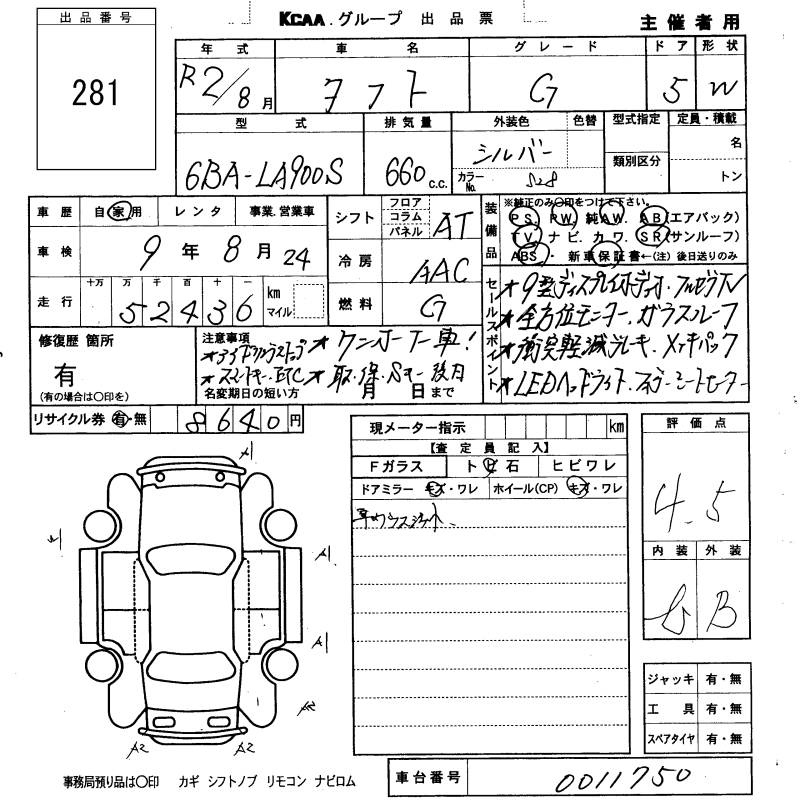 出品番号
281
KCAA.グループ 出品票
主催者用
年式 車名 グレード ドア 形状
R2/8月 タフト G 5 W
型式 排気量 外装色 色替 型式指定 定員・積載
6BA-LA900S 660 c.c. シルバー カラーNo. S28 類別区分 名
トン
車歴 自家用 レンタ 事業.営業車
車検 9年8月24
走行 十万 万 千 百 十 一
52436 km マイル
シフト フロア コラム パネル AT
冷房 AAC
燃料 G
装備品 ※純正のみ○印をつけて下さい。
PS. PW. 純AW. AB(エアバック)
TV ナビ. カワ. SR(サンルーフ)
ABS ・ 新車保証書←(注)後日送りのみ
セールスポイント
★9型ディスプレイオーディオ・フルセグTV
★全方位モニター.ガラスルーフ
★衝突軽減ブレーキ.
★LEDヘッドライト.
修復歴 箇所
有
(有の場合は○印を)
注意事項
★アイドリングストップ ★ワンオーナー車!
★スマートキー.ETC ★取.保.Sキー後日
名変期日の短い方 月 日まで
リサイクル券 有・無 8640円
現メーター指示 km
【査定員記入】
Fガラス トビ石 ヒビワレ
ドアミラー キズ・ワレ ホイール(CP) キズ・ワレ
評価点
4.5
内装 外装
B
A1
A1
A1
A2
A2
ジャッキ 有・無
工具 有・無
スペアタイヤ 有・無
事務局預り品は○印 カギ シフトノブ リモコン ナビロム
車台番号 0011750